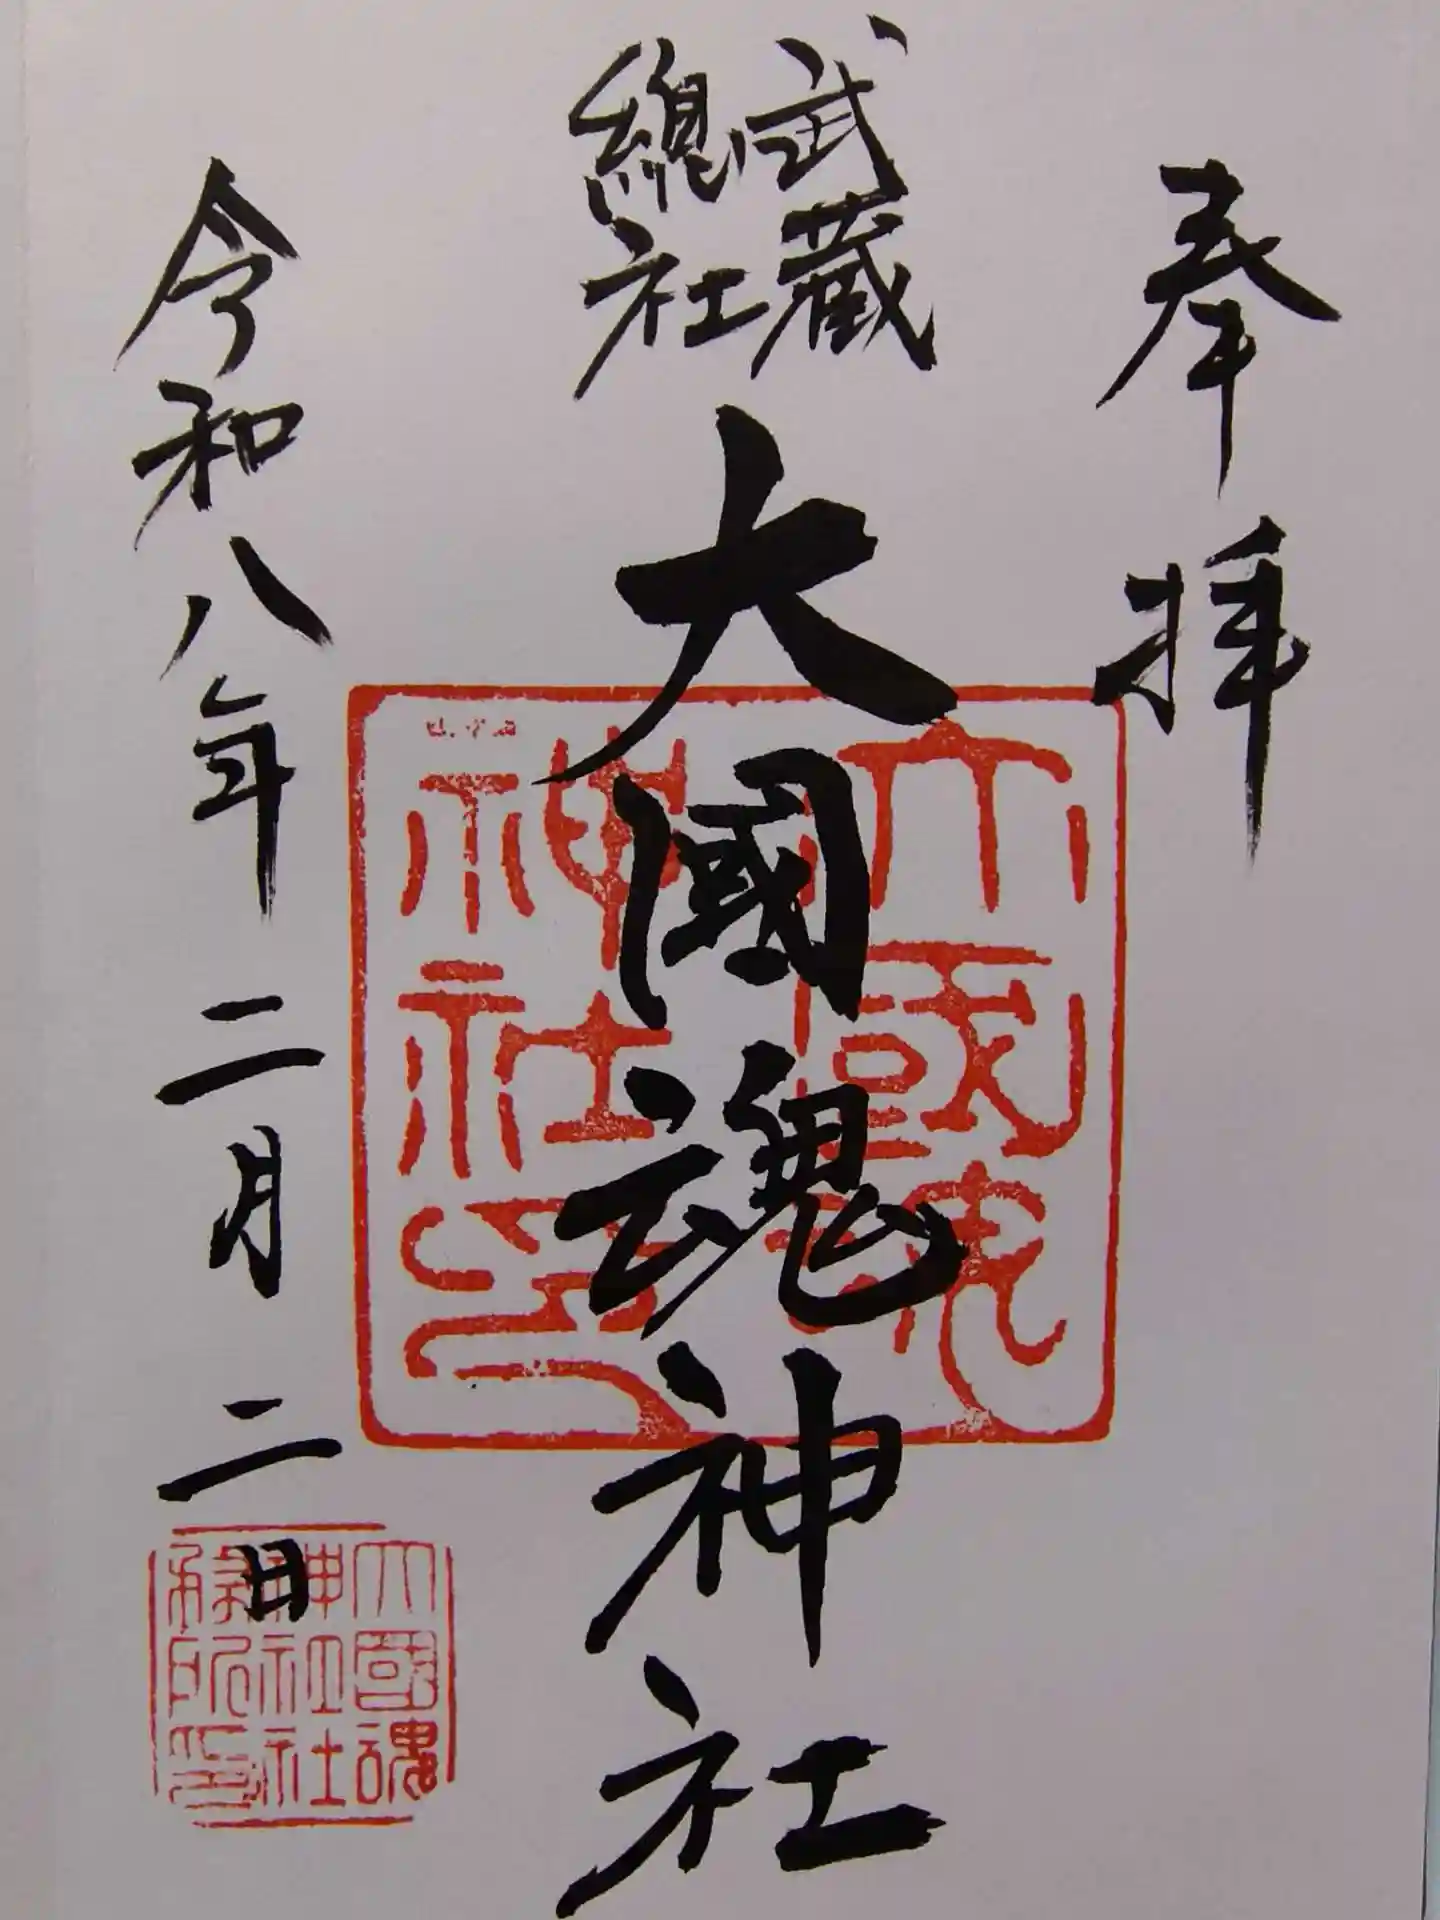 奉拝
武蔵
總社
大國魂神社
令和八年二月二日
大國魂
神社印
大國魂
神社社
務所印